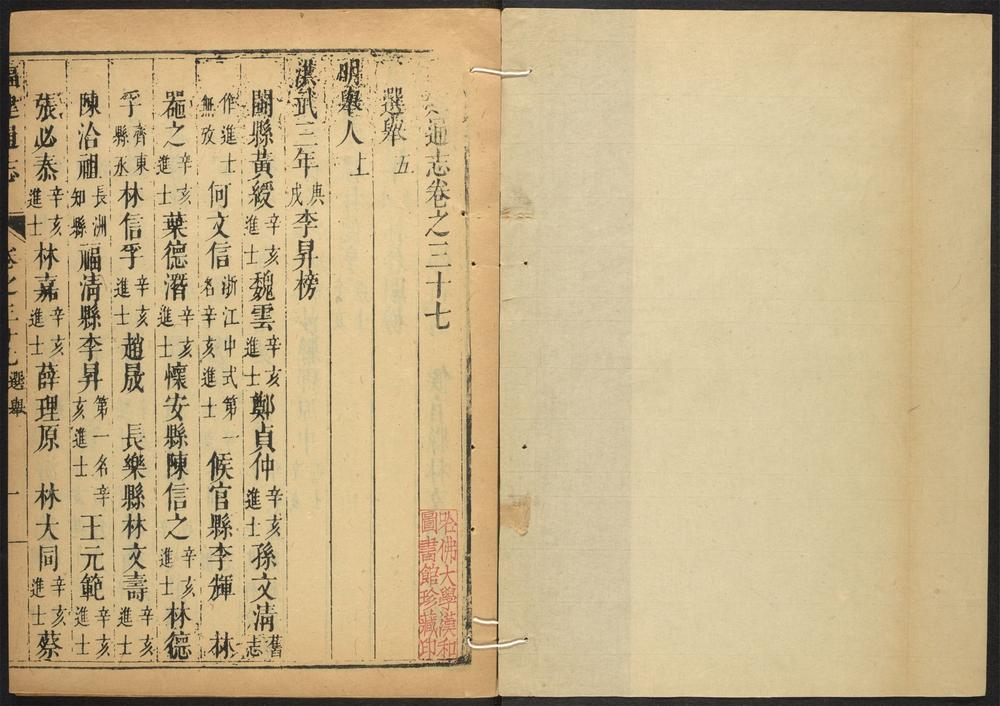 通志卷之三十七
選舉五
明舉人上
洪武三年庚戌李昇榜
閩縣黃綬辛亥進士魏雲辛亥進士鄭貞仲辛亥進士孫文淸舊志
作進士無攷何文信浙江中式第一名辛亥進士候官縣李輝 林
巰之辛亥進士葉德潛辛亥進士懷安縣陳信之辛亥進士林德
孚齊東縣永林信孚辛亥進士趙晟 長樂縣林文壽辛亥進士
陳洽祖長洲知縣福淸縣李昇第一名辛亥進士王元範辛亥進士
張必泰辛亥進士林嘉辛亥進士薛理原 林大同辛亥進士蔡
福建通志 卷之三十七 選舉 一
哈佛大學漢和圖書館珍藏印